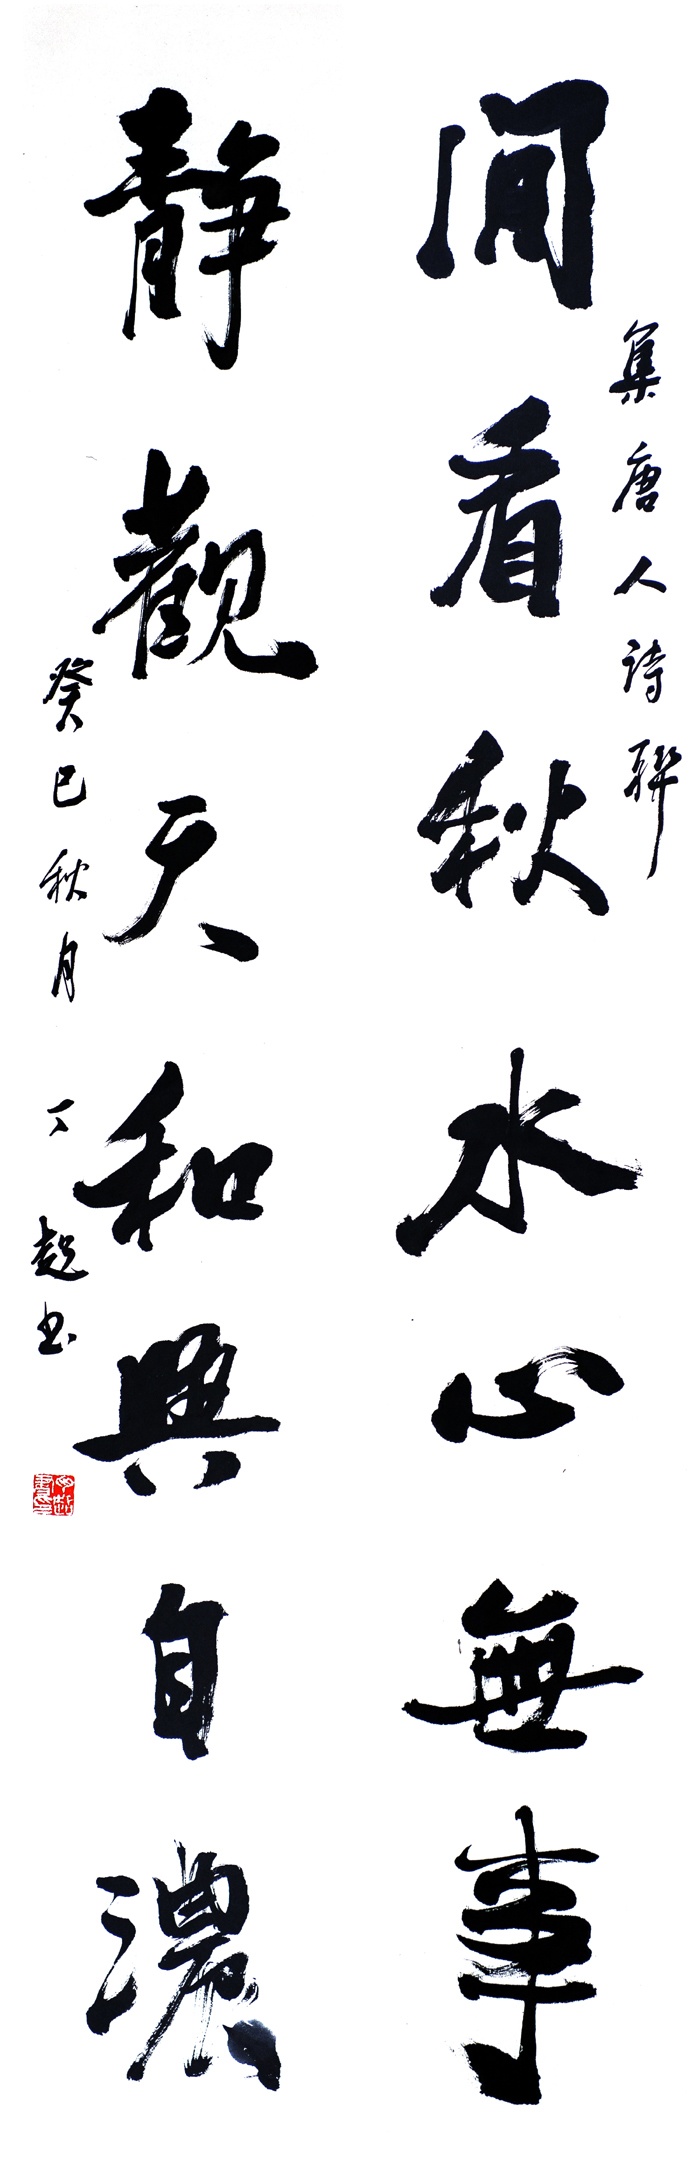 集唐人詩聯
閒看秋水心無事
靜觀天和興自濃
癸巳秋月 丁超书